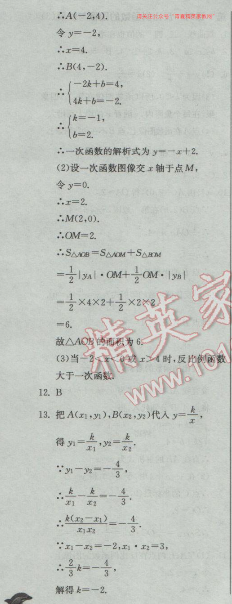 ∴A(-2,4).
令 y=-2,
∴x=4.
∴B(4,-2).
∴{-2k+b=4,
4k+b=-2.
∴{k=-1,
b=2.
∴一次函数的解析式为 y=-x+2.
(2)设一次函数图像交 x 轴于点 M,
令 y=0.
∴x=2.
∴M(2,0).
∴OM=2.
∴S△AOB=S△AOM+S△BOM
=1/2|yA|·OM+1/2OM·|yB|
=1/2×4×2+1/2×2×2
=6.
故△AOB的面积为 6.
(3)当-2<x<0或x>4时,反比例函数
大于一次函数.
12. B
13. 把 A(x₁,y₁),B(x₂,y₂)代入 y=k/x,
得 y₁=k/x₁,y₂=k/x₂.
∵y₁-y₂=-4/3,
∴k/x₁-k/x₂=-4/3.
∴k(x₂-x₁)/x₁x₂=-4/3.
∵x₁-x₂=-2,x₁·x₂=3,
∴2/3k=-4/3,
解得 k=-2.
精英家